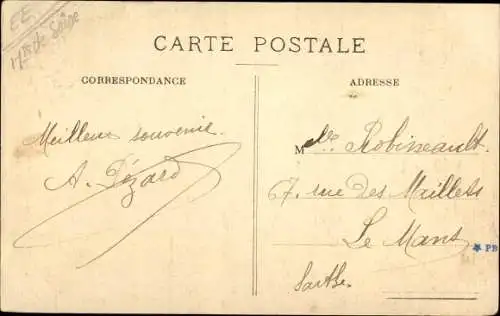 EE
CARTE POSTALE
CORRESPONDANCE
Meilleur souvenir.
A. Dézard
ADRESSE
Mlle Robineault.
7. rue des Maillets
Le Mans
Sarthe.
PB